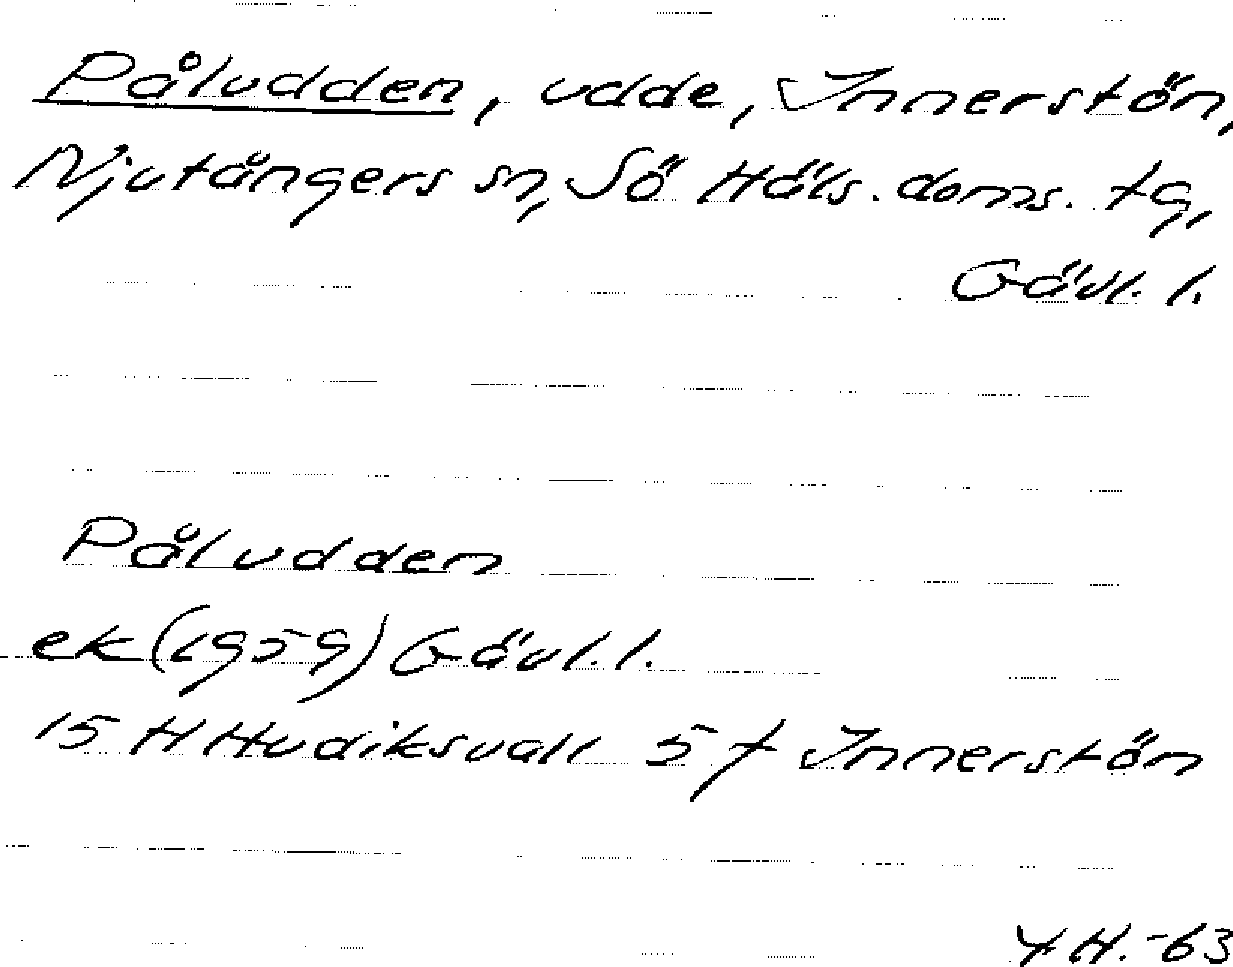 Påludden, udde, Innerstön,
Njutångers sn, Sö Häls. doms. tg,
Gävl. l.
Påludden
ek (1959) Gävl. l.
15 H Hudiksvall 5 f Innerstön
Y H. -63